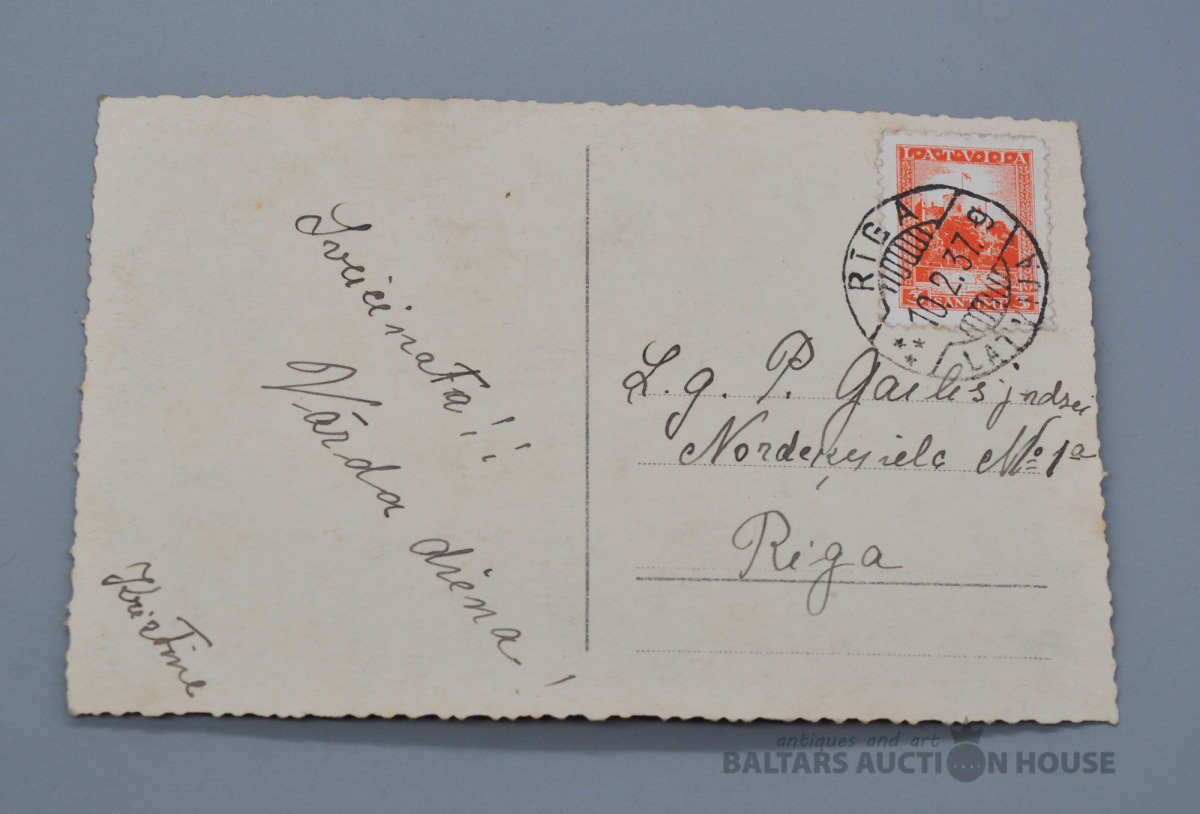 Sveicinata!!
Vārda dienā!
Kristine
LATVIJA
5 SANTIMI 5
RĪGA
10.2.37. 9
LATVIJA
L. g. P. Gailis jndzei
№ 1a
Rīgā
antiques and art
BALTARS AUCTION HOUSE